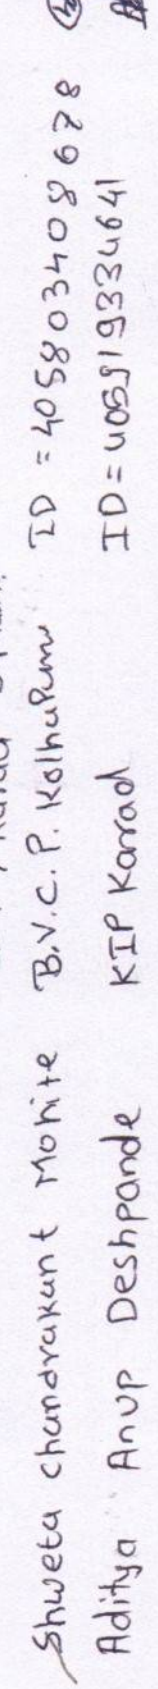 Shweta chandrakant Mohite B.V.C.P. Kolhapur ID = 405803408678
Aditya Anup Deshpande KIP Karad ID = 405819334641